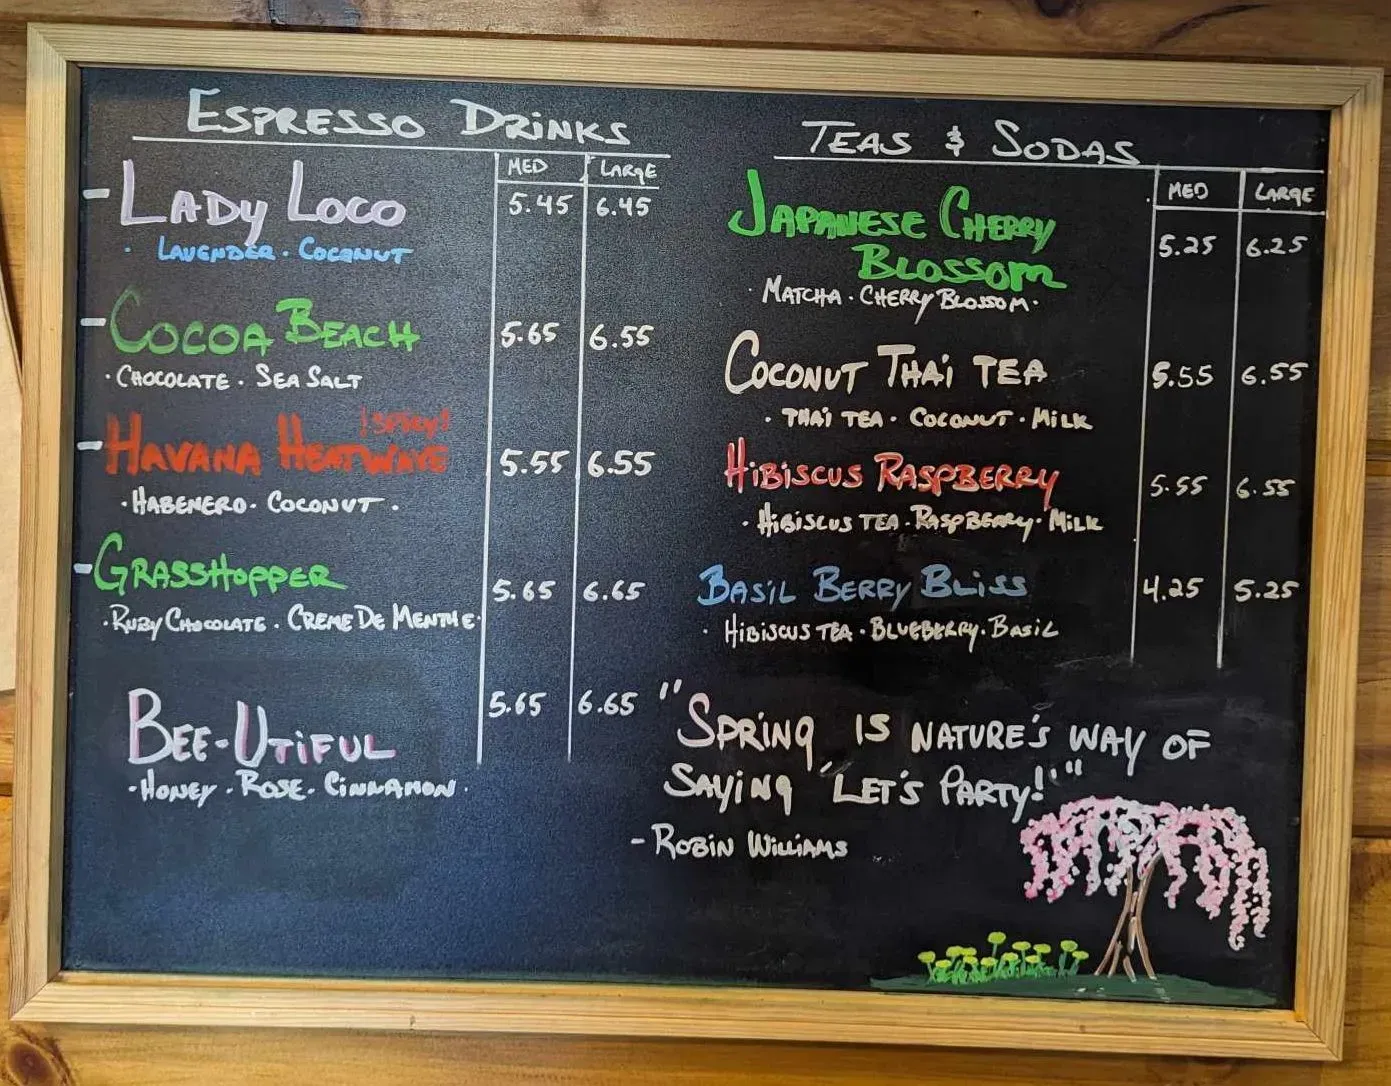 ESPRESSO DRINKS
MED LARGE
- LADY LOCO 5.45 6.45
· LAVENDER · COCONUT
- COCOA BEACH 5.65 6.55
· CHOCOLATE · SEA SALT
!SPICY!
- HAVANA HEATWAVE 5.55 6.55
· HABENERO · COCONUT ·
- GRASSHOPPER 5.65 6.65
· RUBY CHOCOLATE · CREME DE MENTHE ·
BEE-UTIFUL 5.65 6.65
· HONEY · ROSE · CINNAMON ·
TEAS & SODAS
MED LARGE
JAPANESE CHERRY
BLOSSOM 5.25 6.25
· MATCHA · CHERRY BLOSSOM ·
COCONUT THAI TEA 5.55 6.55
· THAI TEA · COCONUT · MILK
HIBISCUS RASPBERRY 5.55 6.55
· HIBISCUS TEA · RASPBERRY · MILK
BASIL BERRY BLISS 4.25 5.25
· HIBISCUS TEA · BLUEBERRY · BASIL
"SPRING IS NATURE'S WAY OF
SAYING 'LET'S PARTY!'"
- ROBIN WILLIAMS